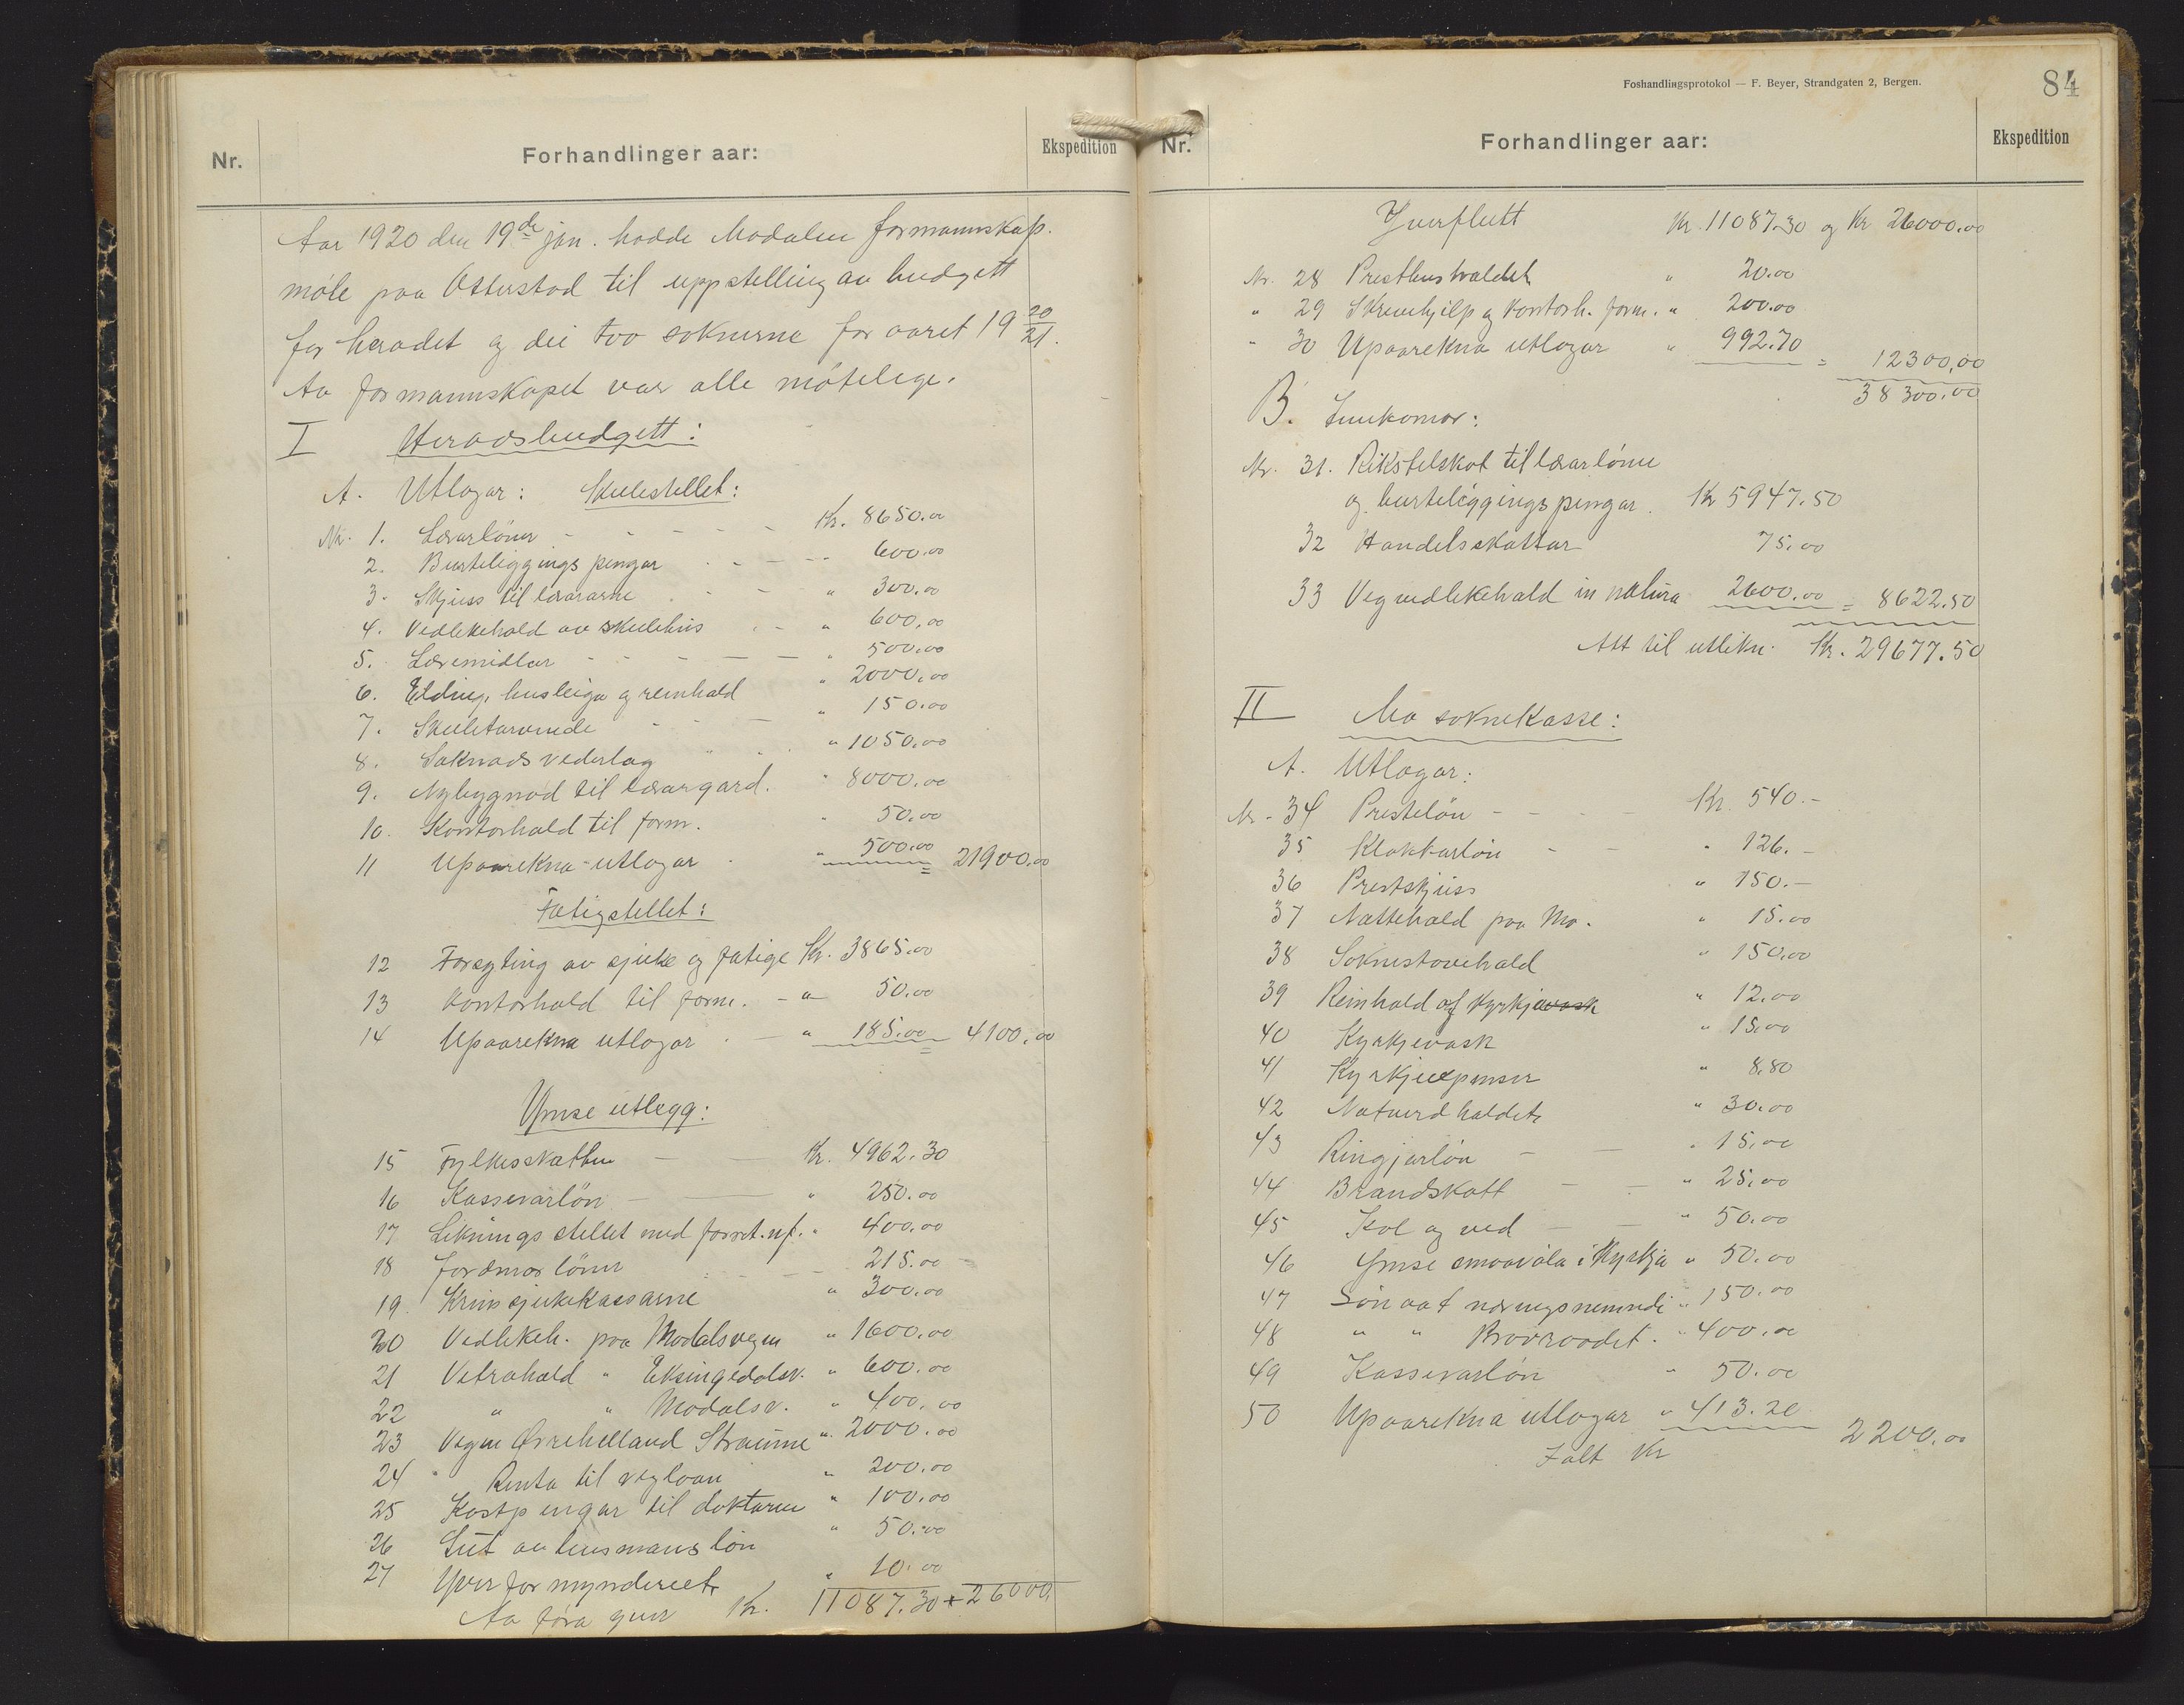 Nr.
Forhandlinger aar:
Ekspedition
Aar 1920 den 19de jan. hadde Modalen formannskap
møte paa Ottustod til uppstelling av budgett
for heradet og dei tvo soknerne for aaret 19 20/21.
Av formannskapet var alle møtelege.
I Heradsbudgett:
A. Utlogar: Skulestellet:
Nr. 1. Lærarlöner - - - - Kr. 8650.00
2. Burteliggings pengar - - - 600.00
3. Skjuss til lærararne - - " 300.00
4. Vedlikehald av skulehus - - " 600.00
5. Læremidlar - - - - - " 500.00
6. Elding, husleiga og reinhald " 2000.00
7. Skuletarvende - - - " 150.00
8. Saknadsvederlag " " 1050.00
9. Nybygnad til lærargard. " 8000.00
10. Kontorhald til form. " 50.00
11 Upaarekna utlogar " 500.00 = 21900.00
Fatigstellet:
12 Forsyting av sjuke og fatige Kr. 3865.00
13 Kontorhald til form. - " 50.00
14 Upaarekna utlogar - " 185.00 = 4100.00
Ymse utlegg:
15 Fylkesskatten - - Kr. 4962.30
16 Kasserarlön - - " 250.00
17 Liknings stellet med forret.nf. " 400.00
18 Jordmor löner - - 215.00
19. Krinssjukekassarne " 300.00
20 Vedlikeh. paa Modalsvegen " 1600.00
21 Vetrahald " Eksingedalsv. " 600.00
22 " " Modalsv. " 400.00
23 Vegen Øvrehelland Straume " 2000.00
24 " Renta til veglaan " 200.00
25 Kostpengar til doktaren " 100.00
26 Lut av lensmanslön " 50.00
27 Yverformynderiet " 10.00
Aa føra yver Kr. 11087.30 + 26000.
Foshandlingsprotokol — F. Beyer, Strandgaten 2, Bergen.
84
Nr.
Forhandlinger aar:
Ekspedition
Yverflutt Kr. 11087.30 og Kr 26000.00
Nr. 28 " 20.00
" 29 Skrivehjelp og kontorh. form. " 200.00
" 30 Upaarekna utlogar " 992.70 = 12300,00
38300.00
B. Innkomor:
Nr. 31. Rikstilskot til lærarlöner
og burteliggingspengar. Kr 5947.50
32 Handelsskattar 75.00
33 Vegvedlikehald in natura 2600.00 = 8622.50
Att til utlikn. Kr. 29677.50
II Mo soknekasse:
A. Utlogar:
Nr. 34 Presteløn - - - Kr. 540.-
35 Klokkarløn - - " 126.-
36 Prestskjuss " 150.-
37 Nattehald paa Mo. " 15.00
38 Soknestovehald " 150.00
39 Reinhald af Kyrkjevask " 12.00
40 Kyrkjevask " 15.00
41 Kyrkjeexpenser " 8.80
42 Natverdhaldet " 30.00
43 Ringjarløn - - " 15.00
44 Brandskatt - - " 25.00
45 Kol og ved - - " 50.00
46 Ymse smaavøla i Kyrkja " 50.00
47 Løn aat næringsnemndi " 150.00
48 " " Provraadet. " 400.00
49 Kasserarløn " 50.00
50 Upaarekna utlogar " 413.20
Ialt Kr 2200.00